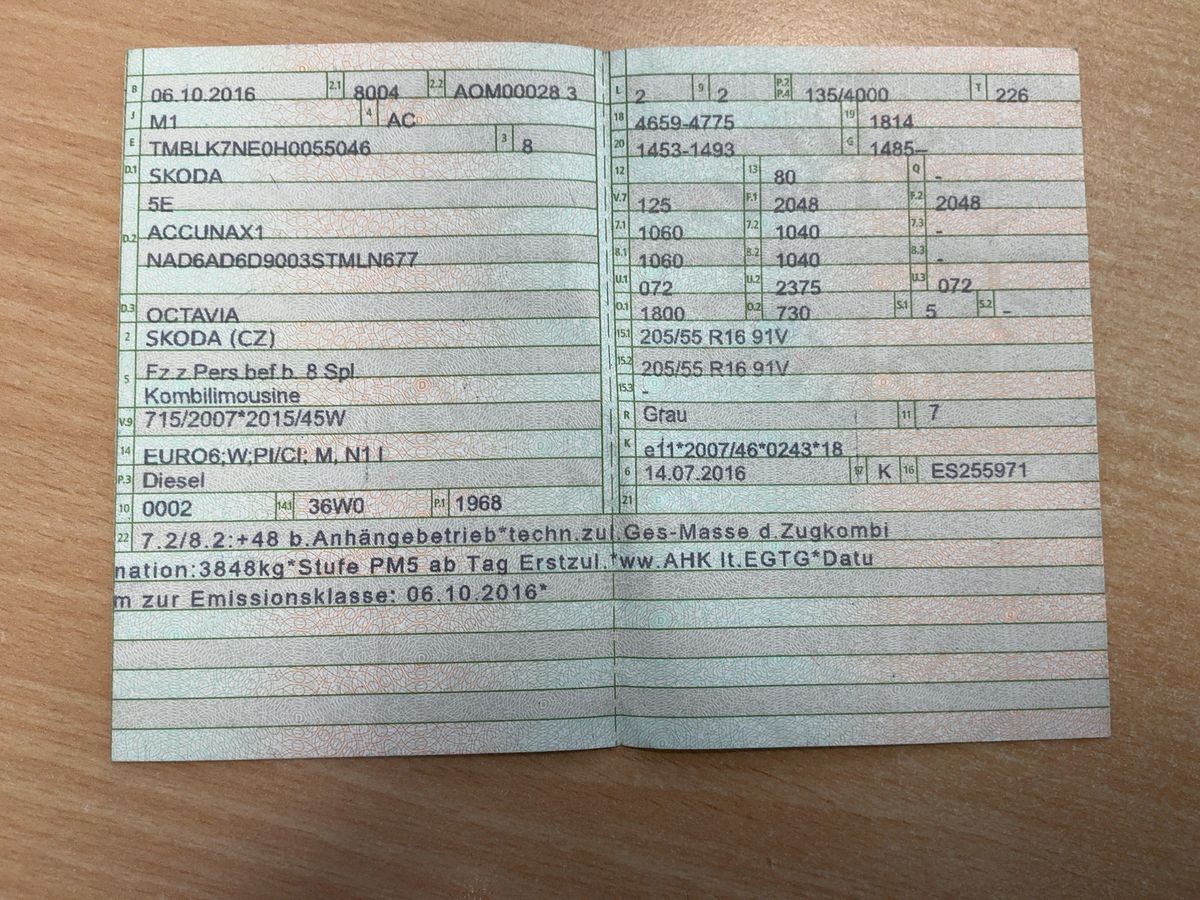 B 06.10.2016 2.1 8004 2.2 AOM00028 3
J M1 4 AC
E TMBLK7NE0H0055046 3 8
D.1 SKODA
5E
D.2 ACCUNAX1
NAD6AD6D9003STMLN677
D.3 OCTAVIA
2 SKODA (CZ)
5 Fz.z.Pers.bef.b. 8 Spl
Kombilimousine
V.9 715/2007*2015/45W
14 EURO6;W;PI/CI; M, N1 I
P.3 Diesel
10 0002 14.1 36W0 P.1 1968
L 2 9 2 P.2 P.4 135/4000 T 226
18 4659-4775 19 1814
20 1453-1493 G 1485-
12 13 80 Q -
V.7 125 F.1 2048 F.2 2048
7.1 1060 7.2 1040 7.3 -
8.1 1060 8.2 1040 8.3 -
U.1 072 U.2 2375 U.3 072
O.1 1800 O.2 730 S.1 5 S.2 -
15.1 205/55 R16 91V
15.2 205/55 R16 91V
15.3 -
R Grau 11 7
K e11*2007/46*0243*18
6 14.07.2016 17 K 16 ES255971
21
22 7.2/8.2:+48 b.Anhängebetrieb*techn.zul.Ges-Masse d.Zugkombi
nation:3848kg*Stufe PM5 ab Tag Erstzul.*ww.AHK lt.EGTG*Datu
m zur Emissionsklasse: 06.10.2016*